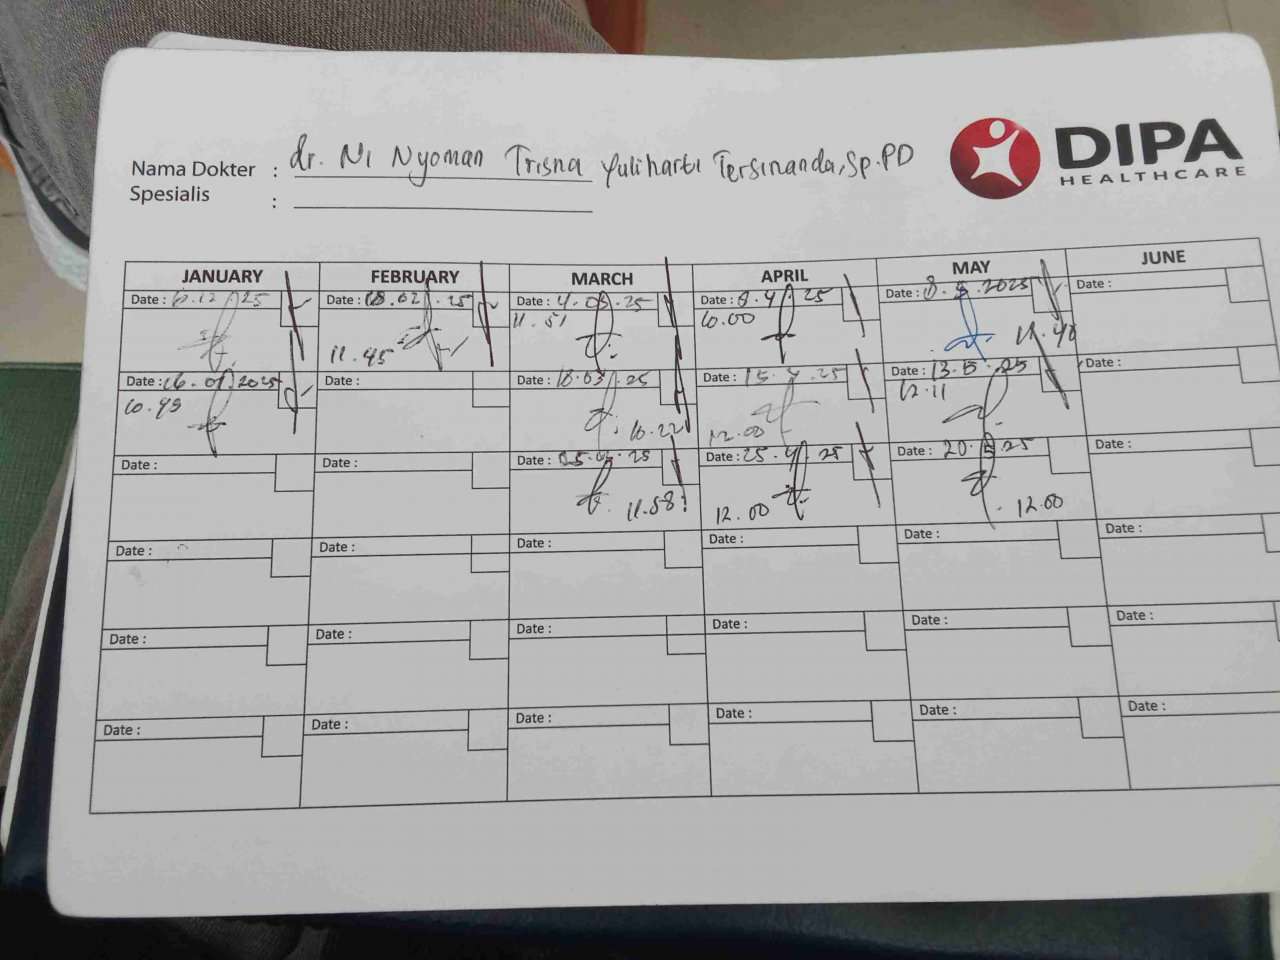 dr. Ni Nyoman Trisna Yuliharti Tersinanda, Sp.PD
Nama Dokter :
Spesialis :
DIPA
HEALTHCARE
JANUARY FEBRUARY MARCH APRIL MAY JUNE
Date : Date : 18.02.25 Date : 4.03.25 Date : 8.4.25 Date : 8.5.2025 Date :
11.45 11.51 10.00 11.40
Date : 16.01.2025 Date : Date : 18.03.25 Date : 15.4.25 Date : 13.5.25 Date :
10.49 10.22 12.00 12.11
Date : Date : Date : 25.03.25 Date : 25.4.25 Date : 20.5.25 Date :
11.58 12.00 12.00
Date : Date : Date : Date : Date : Date :
Date : Date : Date : Date : Date : Date :
Date : Date : Date : Date : Date : Date :